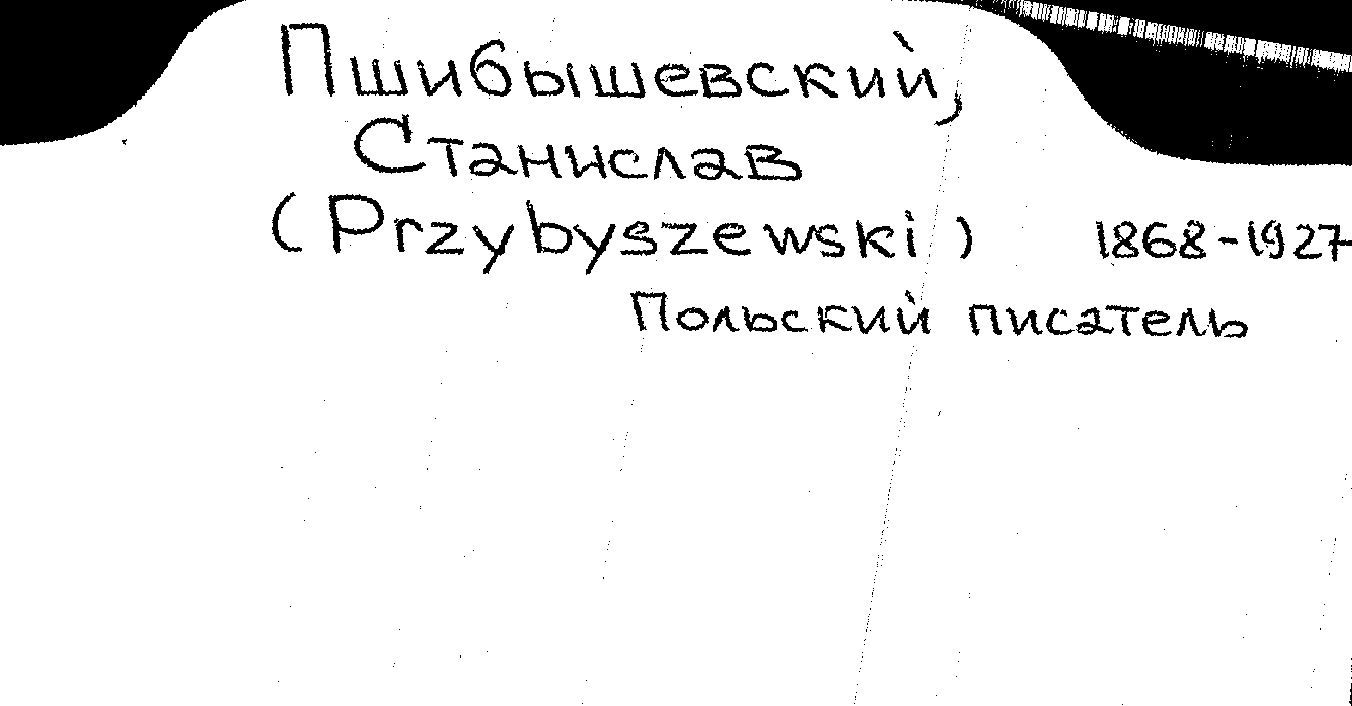 Пшибышевский,
Станислав
(Przybyszewski) 1868-1927
Польский писатель